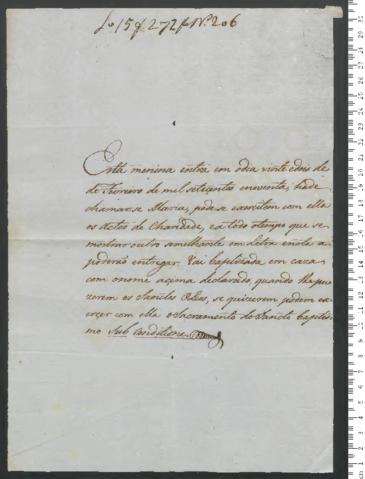 Lo 15 f 272 Nº 206
Esta menina entra em o dia vinte e dois de
de Fevereiro de mil setecentos e noventa, hade
chamar-se Maria, pede-se exercitem com ella
os Actos de Charidade, e a todo o tempo que se
mostrar outro semilhante em letra e nota a
poderão entregar. Vai baptizada em caza
com o nome açima declarado, quando lhe pu
zerem os Sanctos Oleos, se quizerem podem ex
erçer com ella o Sacramento do Sancto baptis
mo Sub Conditione